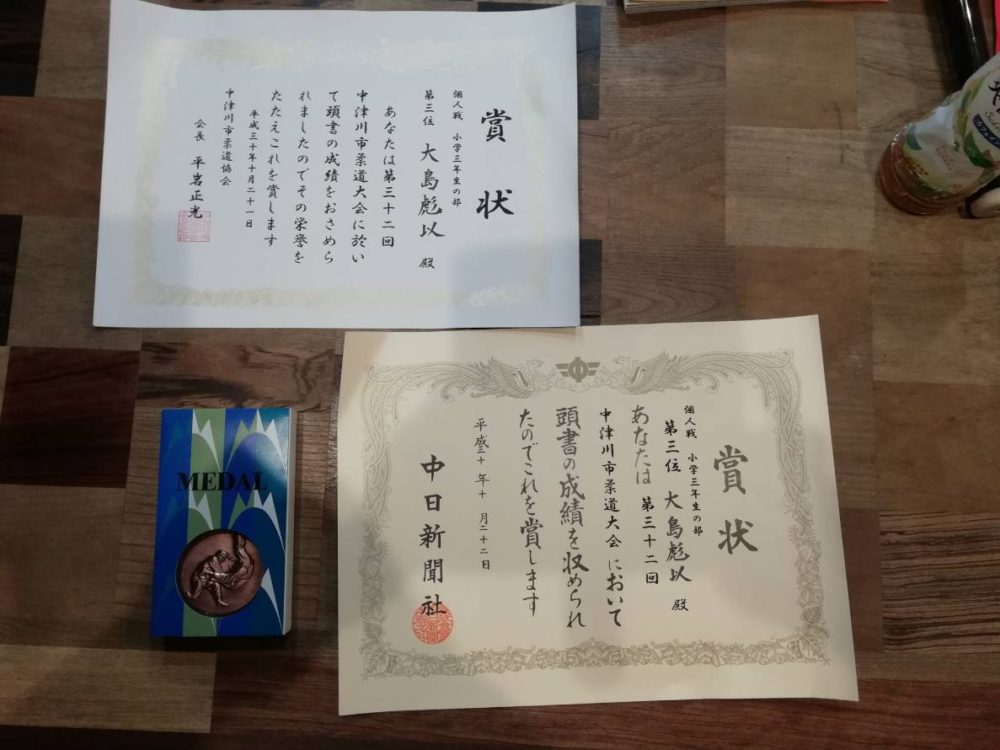 賞状
個人戦 小学三年生の部
第三位 大島彪以 殿
あなたは第三十二回
中津川市柔道大会に於い
て頭書の成績をおさめら
れましたのでその栄誉を
たたえこれを賞します
平成三十年十月二十一日
中津川市柔道協会
会長 平岩正光
賞状
個人戦 小学三年生の部
第三位 大島彪以 殿
あなたは 第三十二回
中津川市柔道大会 において
頭書の成績を収められ
たのでこれを賞します
平成三十年十月二十二日
中日新聞社
MEDAL